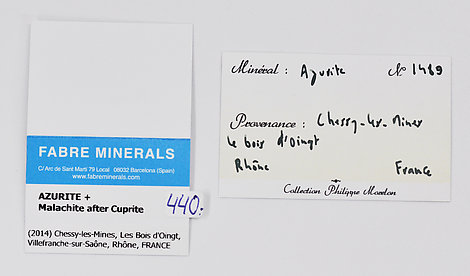 FABRE MINERALS
C/ Arc de Sant Martí 79 Local 08032 Barcelona (Spain)
www.fabreminerals.com
AZURITE +
Malachite after Cuprite
440.-
(2014) Chessy-les-Mines, Les Bois d'Oingt,
Villefranche-sur-Saône, Rhône, FRANCE
Minéral : Azurite No 1489
Provenance : Chessy-les-Mines
le bois d'Oingt
Rhône France
Collection Philippe